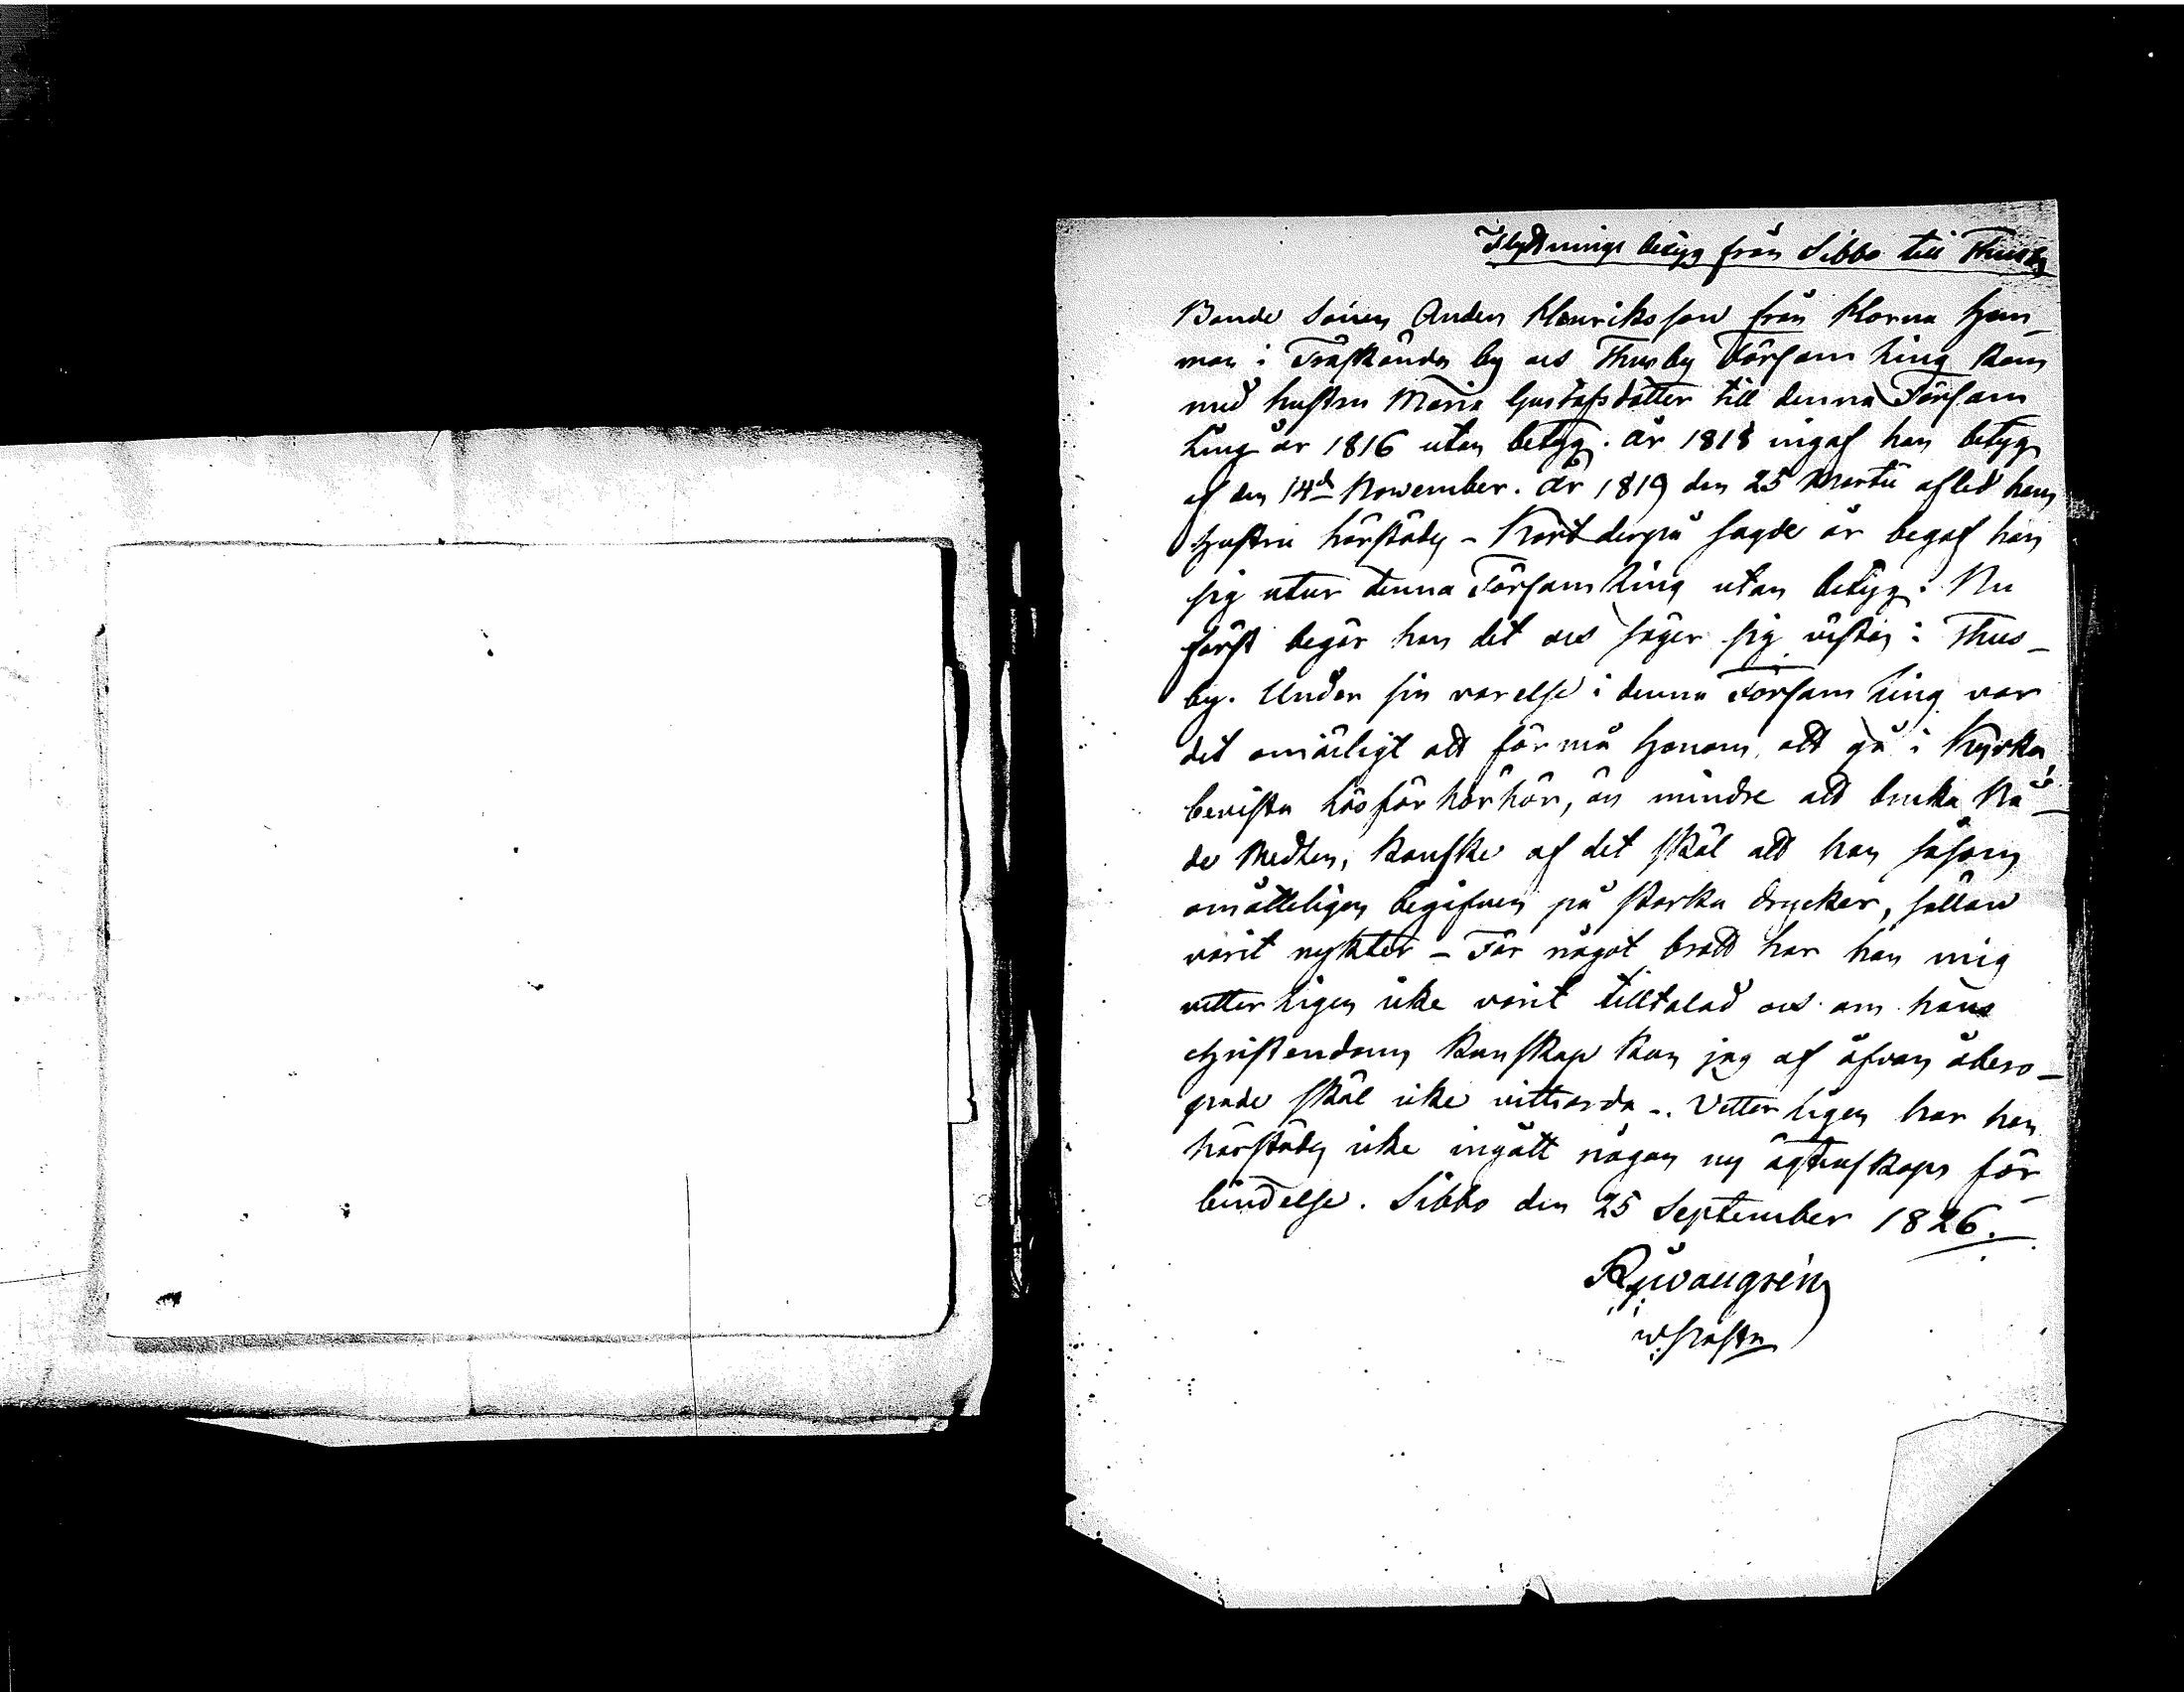 Flyttnings betyg från Sibbo till Thusby
Bonde Sonen Anders Henriksson från Klorva Hem¬
man i Träskända by och Thusby Församling kom
med hustru Maria Gustafsdotter till denna Försam
ling år 1816 utan betyg. År 1818 ingaf han betyg
af den 14de November. År 1819 den 25 Martii afled hans
Hustru härstädes – Kort derpå sagde år begaf han
sig utur denna Församling utan betyg. Nu
först begär han det och säger sig vistas i Thus¬
by. Under sin varelse i denna Församling var
det omöjligt att förmå Honom att gå i Kyrka,
bevista läsförhörhör, än mindre att bruka Nå¬
de Medlen, kanske af det skäl att han såsom
omåtteligen begifven på starka drycker, sällan
varit nykter – För något brott har han mig
vetterligen icke varit tilltalad och om hans
christendoms kunskap kan jag af åfvan åbero¬
pade skäl icke vittsorda –. Vetterligen har han
härstädes icke ingått någon ny ägtenskaps för¬
bindelse. Sibbo den 25 September 1826.